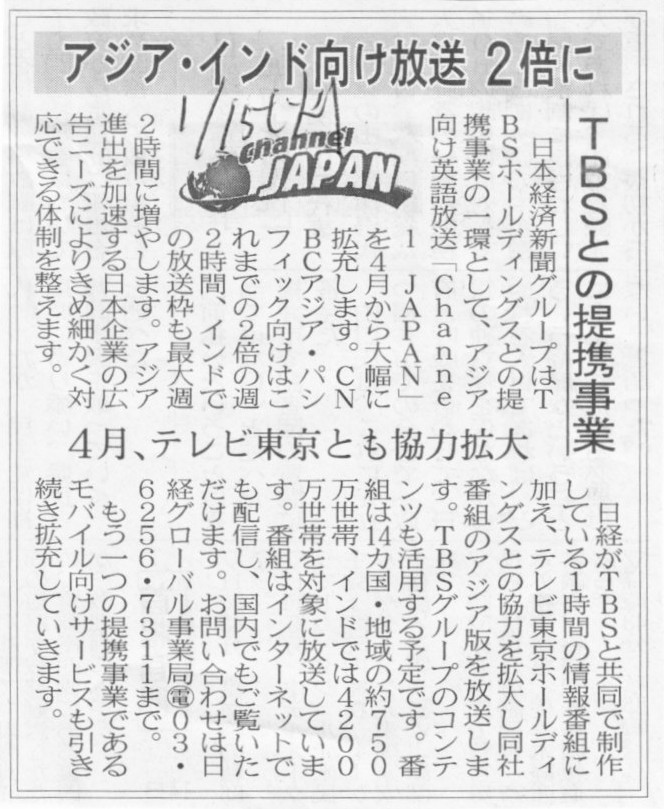 アジア・インド向け放送 2倍に
TBSとの提携事業
1/15
Channel
JAPAN
日本経済新聞グループはT
BSホールディングスとの提
携事業の一環として、アジア
向け英語放送「Channe
l JAPAN」
を4月から大幅に
拡充します。CN
BCアジア・パシ
フィック向けはこ
れまでの2倍の週
2時間、インドで
の放送枠も最大週
2時間に増やします。アジア
進出を加速する日本企業の広
告ニーズによりきめ細かく対
応できる体制を整えます。
4月、テレビ東京とも協力拡大
日経がTBSと共同で制作
している1時間の情報番組に
加え、テレビ東京ホールディ
ングスとの協力を拡大し同社
番組のアジア版を放送しま
す。TBSグループのコンテ
ンツも活用する予定です。番
組は14カ国・地域の約750
万世帯、インドでは4200
万世帯を対象に放送していま
す。番組はインターネットで
も配信し、国内でもご覧いた
だけます。お問い合わせは日
経グローバル事業局㊢03・
6256・7311まで。
もう一つの提携事業である
モバイル向けサービスも引き
続き拡充していきます。